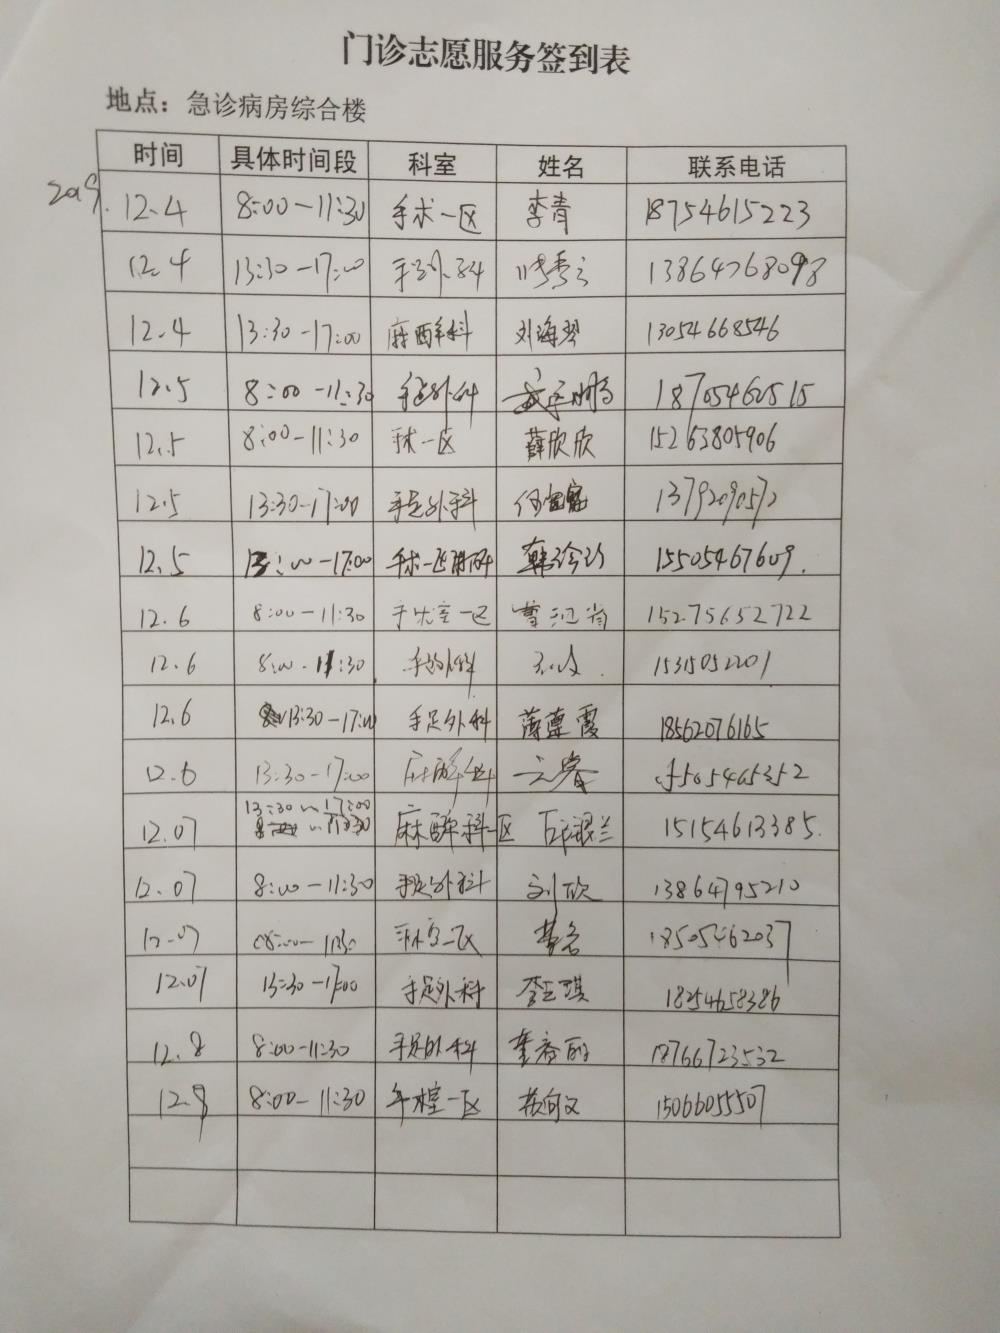 门诊志愿服务签到表
地点：急诊病房综合楼
时间 具体时间段 科室 姓名 联系电话
2019. 12.4 8:00-11:30 手术一区 李青 18754615223
12.4 13:30-17:00 手足外科 13864768098
12.4 13:30-17:00 麻醉科 刘海琴 13054668546
12.5 8:00-11:30 手足外科 18705462515
12.5 8:00-11:30 手术一区 薛欣欣 15263805906
12.5 13:30-17:00 手足外科 13792090572
12.5 13:00-17:00 手术一区麻醉科 韩珍珍 15505467609.
12.6 8:00-11:30 手术室一区 15275652722
12.6 8:00-11:30 手足外科 15315052201
12.6 13:30-17:00 手足外科 薄莲霞 18562076165
12.6 13:30-17:00 麻醉科 15505465352
12.07 13:30~17:00 麻醉科一区 石银兰 15154613385.
12.07 8:00-11:30 手足外科 刘欣 13864795210
12.07 08:00-11:30 手术室一区 18505462037
12.07 13:30-17:00 手足外科 李玉琪 18254658386
12.8 8:00-11:30 手足外科 董春丽 18766723532
12.8 8:00-11:30 手术室一区 15066055507